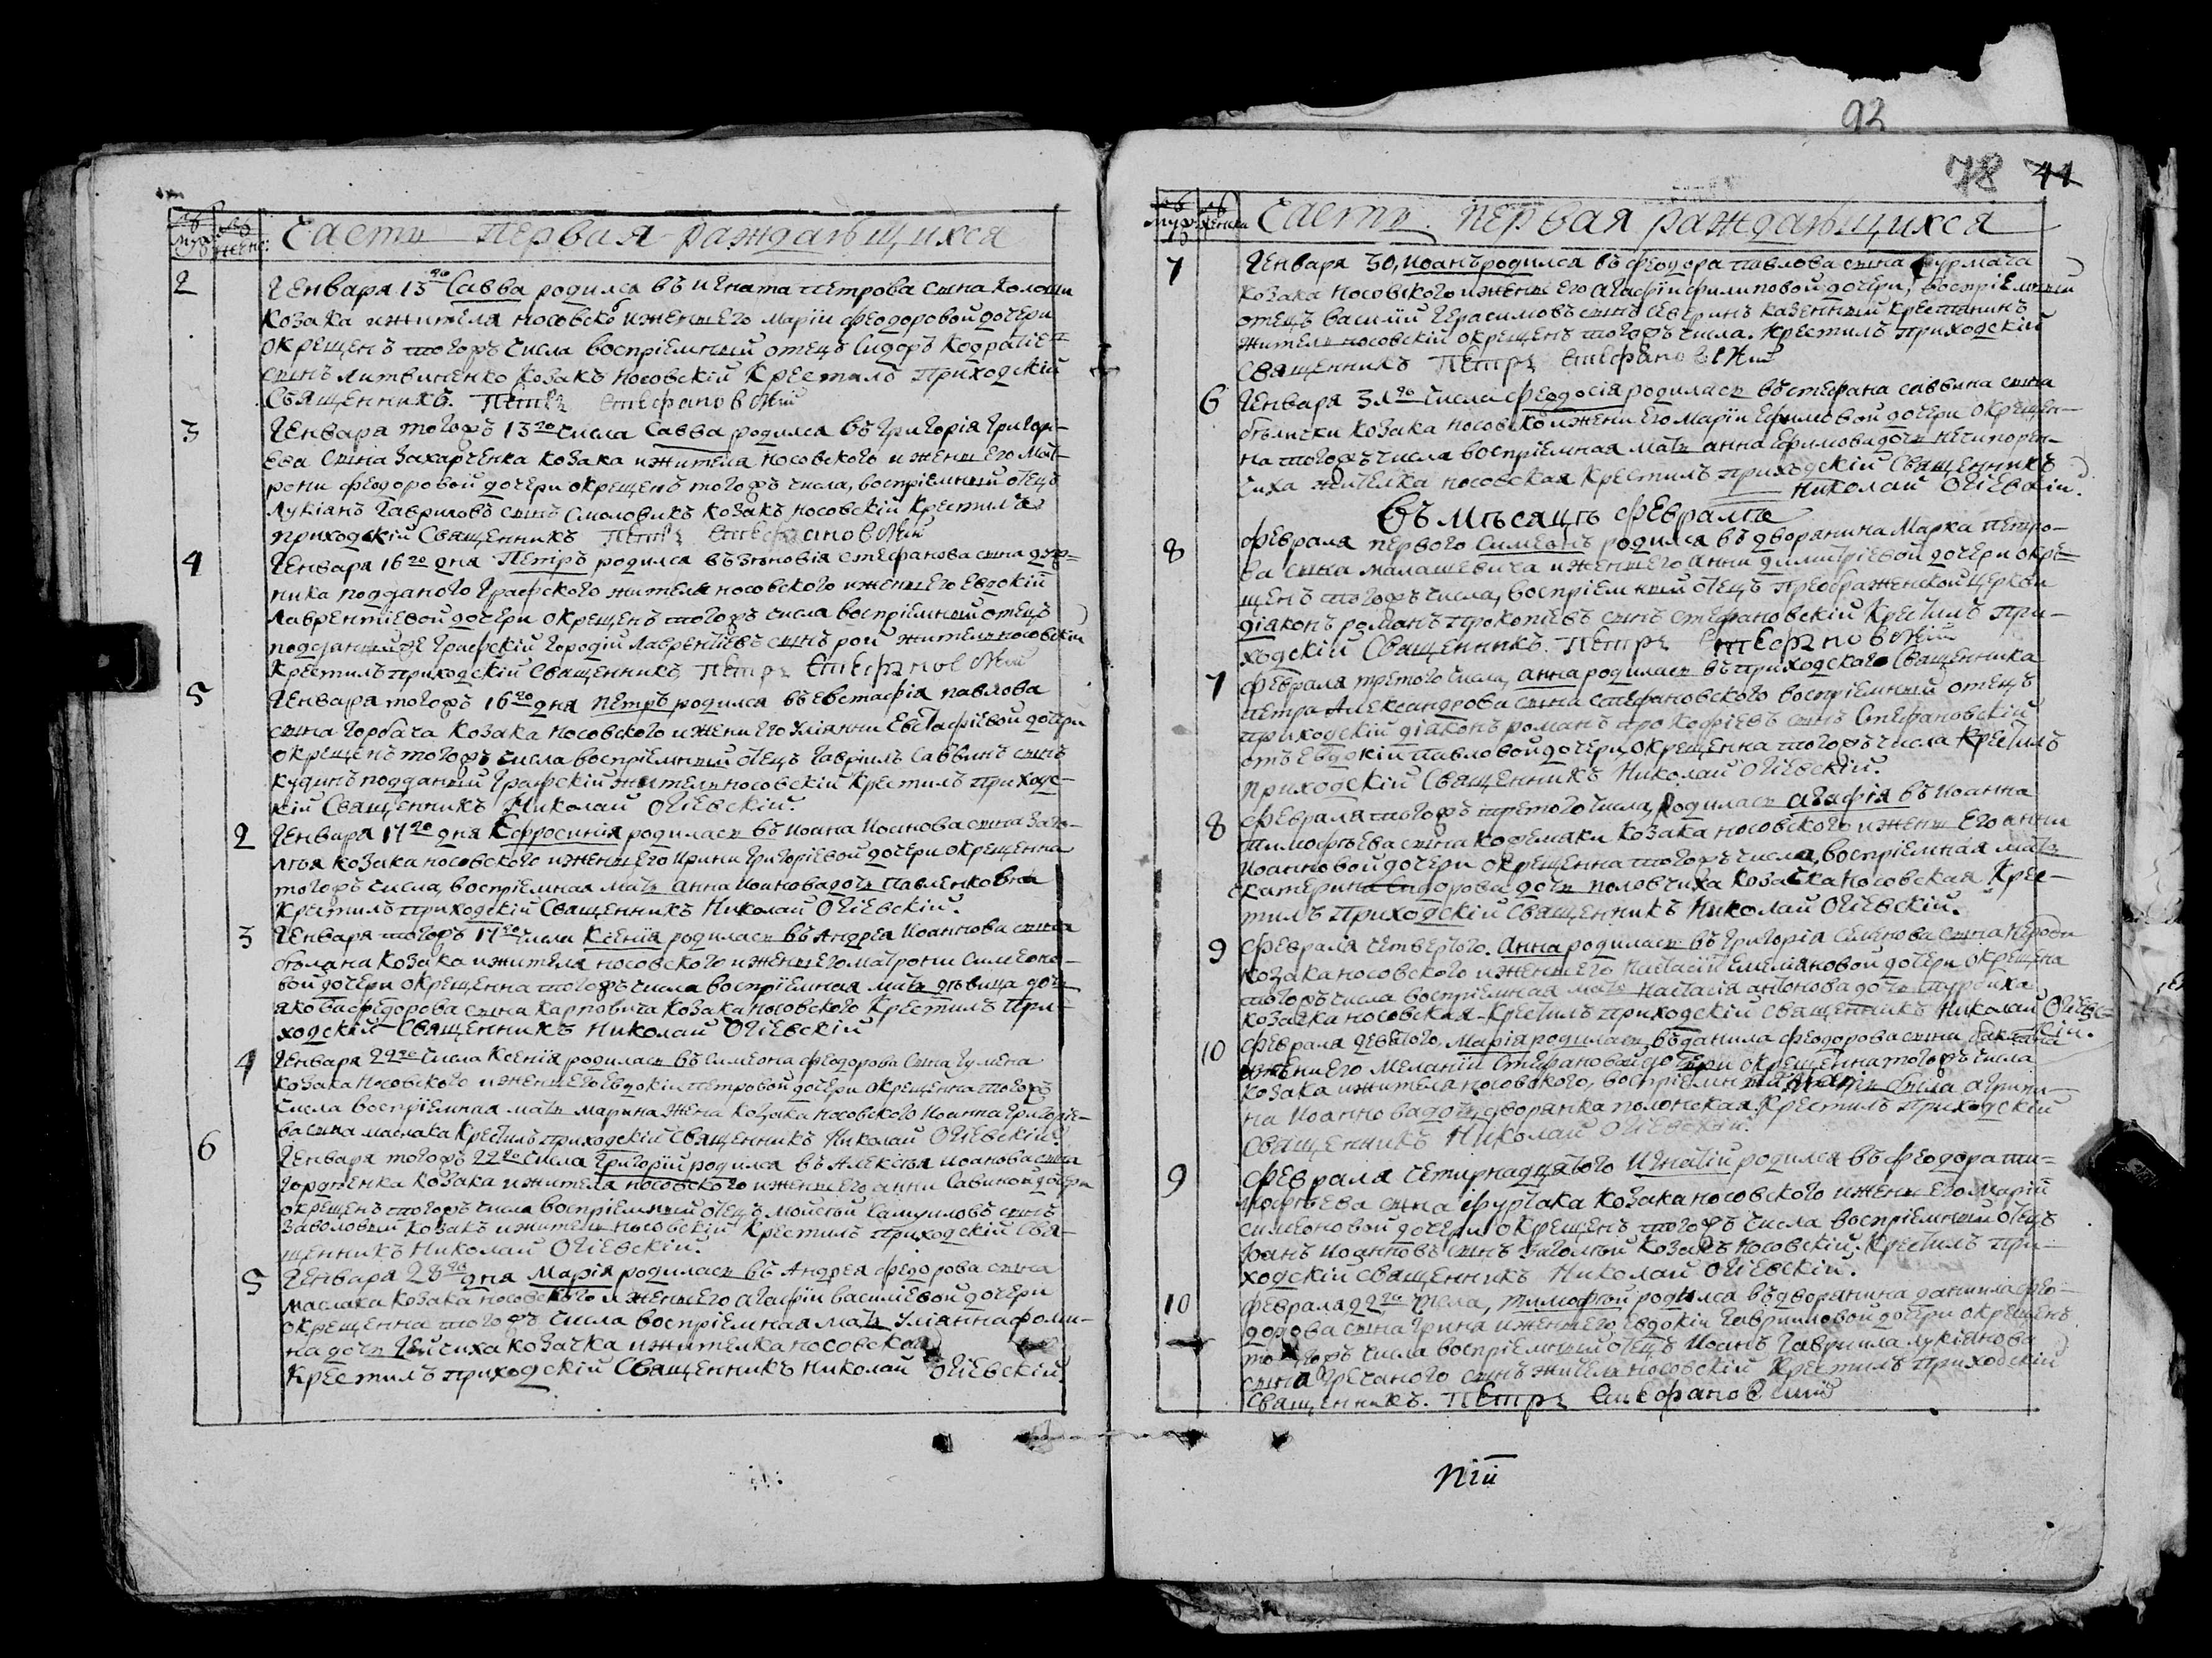 92
78 41
Часть первая раждающихся
2 Генваря 13го Савва родился въ Игната Петрова сина
козака и жителя носовско и жени Его Маріи феодоровой дочери
окрещенъ тогожъ числа воспріемный отецъ Сидоръ
синъ Литвиненко козакъ носовскій Крестилъ приходскій
Священникъ. Петръ Стефановскій
3 Генваря тогожъ 13го числа Савва родился въ Григорія Григорі-
ева сина Захарченка козака и жителя носовского и жени Его Мат-
рони феодоровой дочери окрещенъ тогожъ числа, воспріемный отецъ
Лукіанъ Гавриловъ синъ Смоловикъ козакъ носовскій Крестилъ
приходскій Священникъ Петръ Стефановскій
4 Генваря 16го дня Петръ родился въ Зѣновія Стефанова сина
ника подданого Графского жителя носовского и жени Его Евдокій
Лаврентіевой дочери окрещенъ тогожъ числа воспріемный отецъ
подданный Графскій Гордій Лаврентіевъ синъ рой житель носовскій
Крестилъ приходскій Священникъ Петръ Стефановскій
5 Генваря тогожъ 16го дня Петръ родился въ Евстафія Павлова
сина Горбача козака носовского и жени Его Уліянни Евстафіевой дочери
окрещенъ тогожъ числа воспріемный отецъ Гавріилъ Саввинъ синъ
кудинъ подданый Графскій житель носовскій крестилъ приходс-
кій Священникъ Николай Огіевскій.
2 Генваря 17го дня Ефросинія родилась въ Иоана Иоанова сина Заго-
лтя козака носовского и жени Его Ирини Григоріевой дочери окрещенна
тогожъ числа, воспріемная мать анна Иоанова дочь Павленкова
Крестилъ приходскій Священникъ Николай Огіевскій.
3 Генваря тогожъ 17го числа Ксенія родилась въ Андрея Иоаннова сина
козака и жителя носовского и жени Его Матрони Симеоно-
вой дочери окрещенна тогожъ числа воспріемная мать дѣвица дочь
якова федорова сина Карповича козака носовского Крестилъ при-
ходскій Священникъ Николай Огіевскій
4 Генваря 22го числа Ксенія родилась въ Симеона феодорова сина Гумена
козака носовского и жени Его Евдокіи Петровой дочери окрещенна тогожъ
числа воспріемная мать Марина жена козака носовского Иоанна Григоріе-
ва сина маслака Крестилъ приходскій Священникъ Николай Огіевскій.
6 Генваря тогожъ 22го числа Григорій родился въ Алексѣя Иоанова сина
Гордѣенка козака и жителя носовского и жени Его анни Савиной дочери
окрещенъ тогожъ числа воспріемный отецъ Моисѣй Самуиловъ синъ
Заволовный козакъ и житель носовскій Крестилъ приходскій Свя-
щенникъ Николай Огіевскій.
5 Генваря 28го дня Марія родилась въ Андрея федорова сина
маслака козака носовского и жени Его агафіи василіевой дочери
окрещенна тогожъ числа воспріемная мать Уліанна фоми-
на дочь козачка и жителка носовская
Крестилъ приходскій Священникъ Николай Огіевскій.
Часть первая раждающихся
7 Генваря 30, Иоанъ родился въ феодора Павлова сина
козака носовского и жени Его агафіи филиповой дочери, воспріемный
отецъ василій Герасимовъ синъ Северинъ казенный крестянинъ
житель носовскій окрещенъ тогожъ числа. Крестилъ приходскій
Священникъ Петръ Стефановскій
6 Генваря 31го числа феодосія родилась въ Стефана Саввина сина
козака носовско и жени Его Маріи Ефимовой дочери окрещен-
на тогожъ числа воспріемная мать анна Ефимова дочь Нечипорен-
чиха жителка носовская Крестилъ приходскій Священникъ
Николай Огіевскій.
Въ Мѣсяцѣ февралѣ
8 февраля первого Симеонъ родился въ дворянина Марка Петро-
ва сина малашевича и жени Его анни димитріевой дочери окре-
щенъ тогожъ числа, воспріемный отецъ Преображенской церкви
діаконъ романъ прокопіевъ синъ Стефановскій Крестилъ при-
ходскій Священникъ. Петръ Стефановскій
7 февраля третого числа, анна родилась въ приходского Священника
Петра Александрова сина Стефановского воспріемный отецъ
приходскій діаконъ романъ синъ Стефановскій
отъ Евдокій Павловой дочери, окрещенна тогожъ числа Крестилъ
приходскій Священникъ Николай Огіевскій.
8 февраля тогожъ третого числа, родилась агафія въ Иоанна
Тимофѣева сина Кожемяки козака носовского и жени Его анни
Иоанновой дочери окрещенна тогожъ числа, воспріемная мать
катерина Сидорова дочь половчиха козачка носовская Крес-
тилъ приходскій Священникъ Николай Огіевскій.
9 февраля четвертого. Анна родилась въ Григорія Семенова сина
козака носовского и жени Его Настасіи Емеліяновой дочери окрещена
тогожъ числа воспріемная мать Настасія антонова дочь
козачка носовская Крестилъ приходскій Священникъ Николай Огіевс-
кій.
10 февраля девятого, Марія родилась въ данила феодорова сина
и жени Его Меланіи Стефановой дочери окрещенна тогожъ числа
козака и жителя носовского, воспріемная мать была агрипи-
на Иоаннова дочь дворянка полонская Крестилъ приходскій
Священникъ Николай Огіевскій.
9 февраля четирнадцятого Игнатій родился въ феодора ти-
мофѣева сина козака носовского и жени Его Марій
симеоновой дочери окрещенъ тогожъ числа воспріемный отецъ
Иоанновъ синъ козакъ носовскій. Крестилъ при-
ходскій священникъ Николай Огіевскій.
10 февраля 22го числа, Тимофѣй родился въ дворянина даніила фео-
дорова сина Гриня и жени Его Евдокіи Гавриловой дочери окрещенъ
тогожъ числа воспріемный отецъ Иоанъ Гавриила лукіянова
сина Гречаного синъ житель носовскій Крестилъ приходскій
Священникъ. Петръ Стефановскій